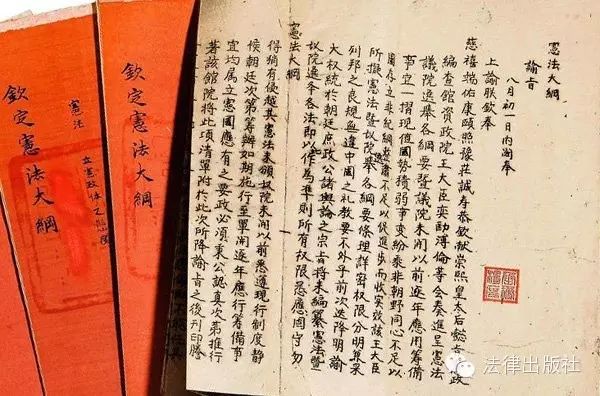 憲法大綱
諭旨
八月初一日內閣奉
上諭朕欽奉
慈禧端佑康頤照豫莊誠壽恭欽獻崇熙皇太后懿旨憲政
編查館資政院王大臣奕劻溥倫等會奏進呈憲法
議院選舉各綱要暨議院未開以前逐年應用籌備
事宜一摺現值國勢積弱事變紛乘非朝野同心不足以
圖存立非紀綱整肅不足以促進步而收實效該王大臣
所擬憲法暨議院選舉各綱要條理詳密權限分明兼采
列邦之良規無違中國之禮教要不外乎前次迭降明諭
大權統於朝廷庶政公諸輿論之宗旨將來編纂憲法暨
議院選舉各法即以作為準則所有權限悉應固守勿
憲法大綱
得稍有侵越其憲法未頒議院未開以前悉遵現行制度靜
候朝廷次第籌辦如期施行至單開逐年應行籌備事
宜均屬立憲國應有之要政必須秉公認真次第推行
著該館院將此項清單附於此次所降諭旨之後刊印謄
欽定憲法大綱
憲法
欽定憲法大綱
法律出版社